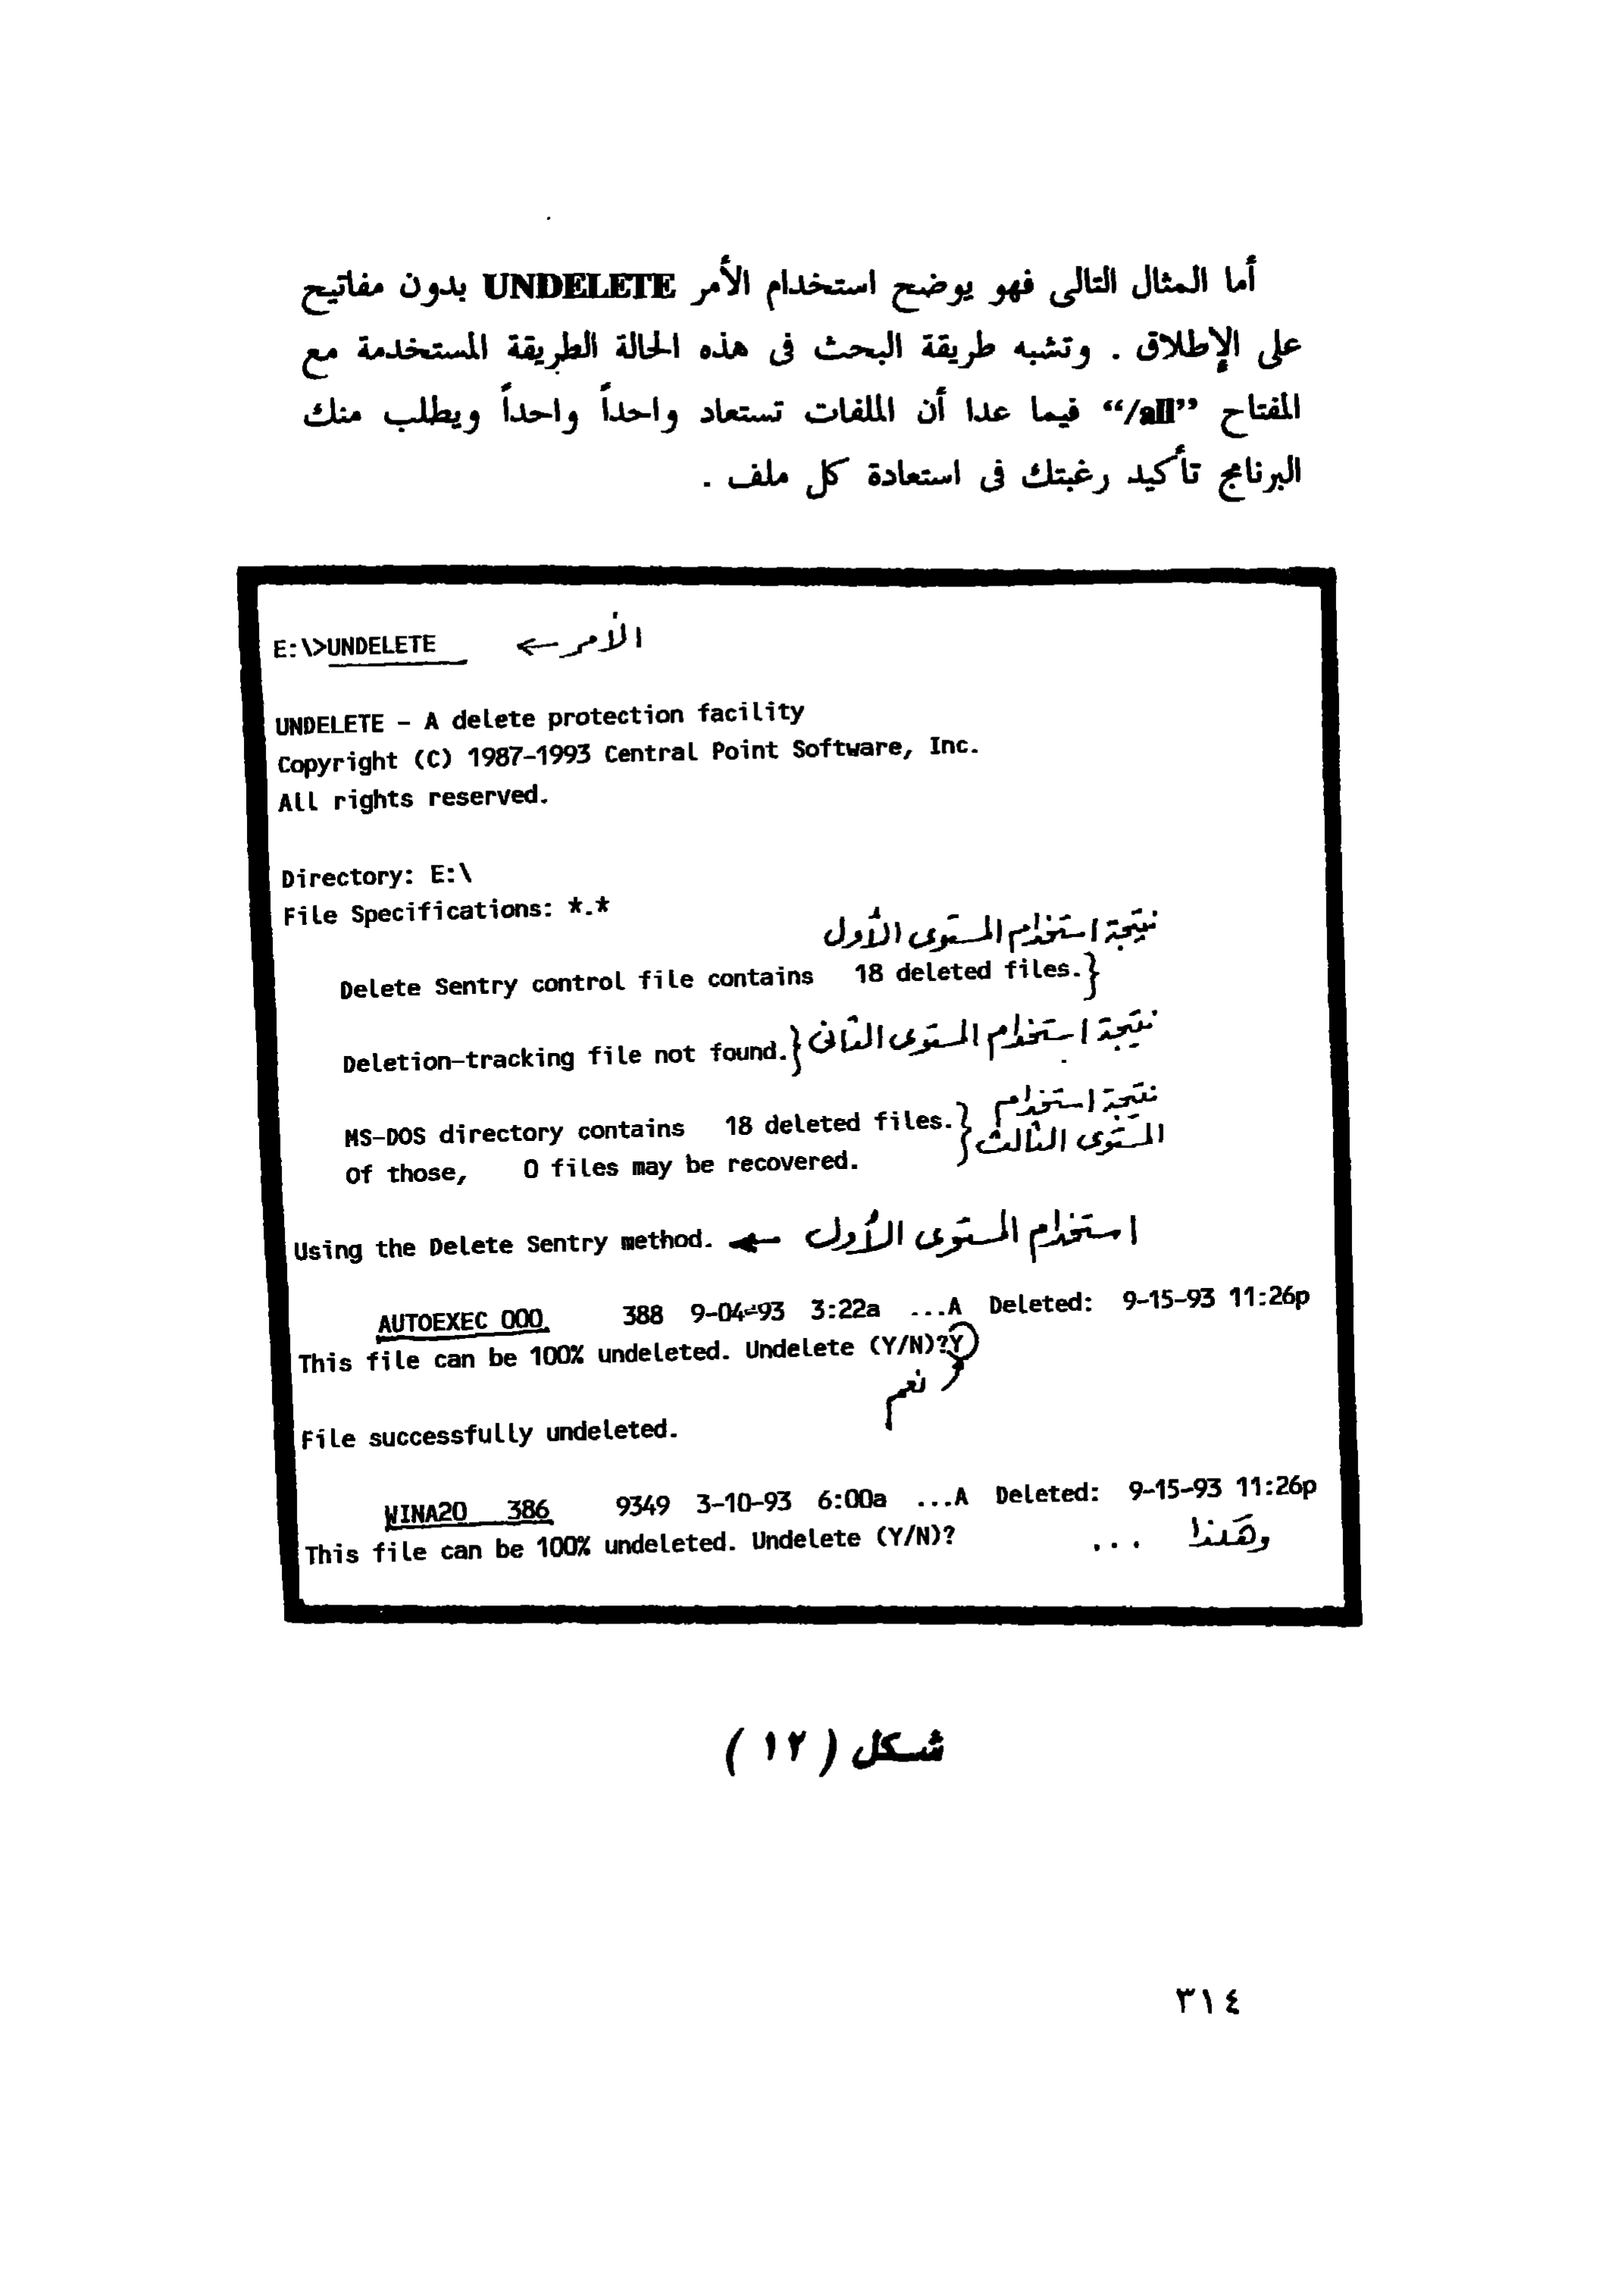 أما المثال التالى فهو يوضح استخدام الأمر UNDELETE بدون مفاتيح
على الإطلاق . وتشبه طريقة البحث فى هذه الحالة الطريقة المستخدمة مع
المفتاح “/all” فيما عدا أن الملفات تستعاد واحداً واحداً ويطلب منك
البرنامج تأكيد رغبتك فى استعادة كل ملف .
E:\>UNDELETE ← الأمر
UNDELETE - A delete protection facility
Copyright (C) 1987-1993 Central Point Software, Inc.
All rights reserved.
Directory: E:\
File Specifications: *.*
نتيجة استخدام المستوى الأول
Delete Sentry control file contains 18 deleted files.}
Deletion-tracking file not found.} نتيجة استخدام المستوى الثانى
نتيجة استخدام
MS-DOS directory contains 18 deleted files.} المستوى الثالث
Of those, 0 files may be recovered.
Using the Delete Sentry method. ← استخدام المستوى الأول
AUTOEXEC 000 388 9-04-93 3:22a ...A Deleted: 9-15-93 11:26p
This file can be 100% undeleted. Undelete (Y/N)?Y
نعم
File successfully undeleted.
WINA20 386 9349 3-10-93 6:00a ...A Deleted: 9-15-93 11:26p
This file can be 100% undeleted. Undelete (Y/N)? وهكذا ...
شكل ( ١٢ )
٣١٤